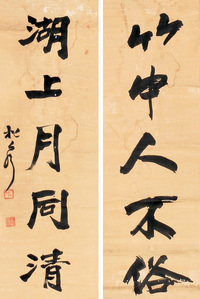 竹中人不俗
湖上月同清